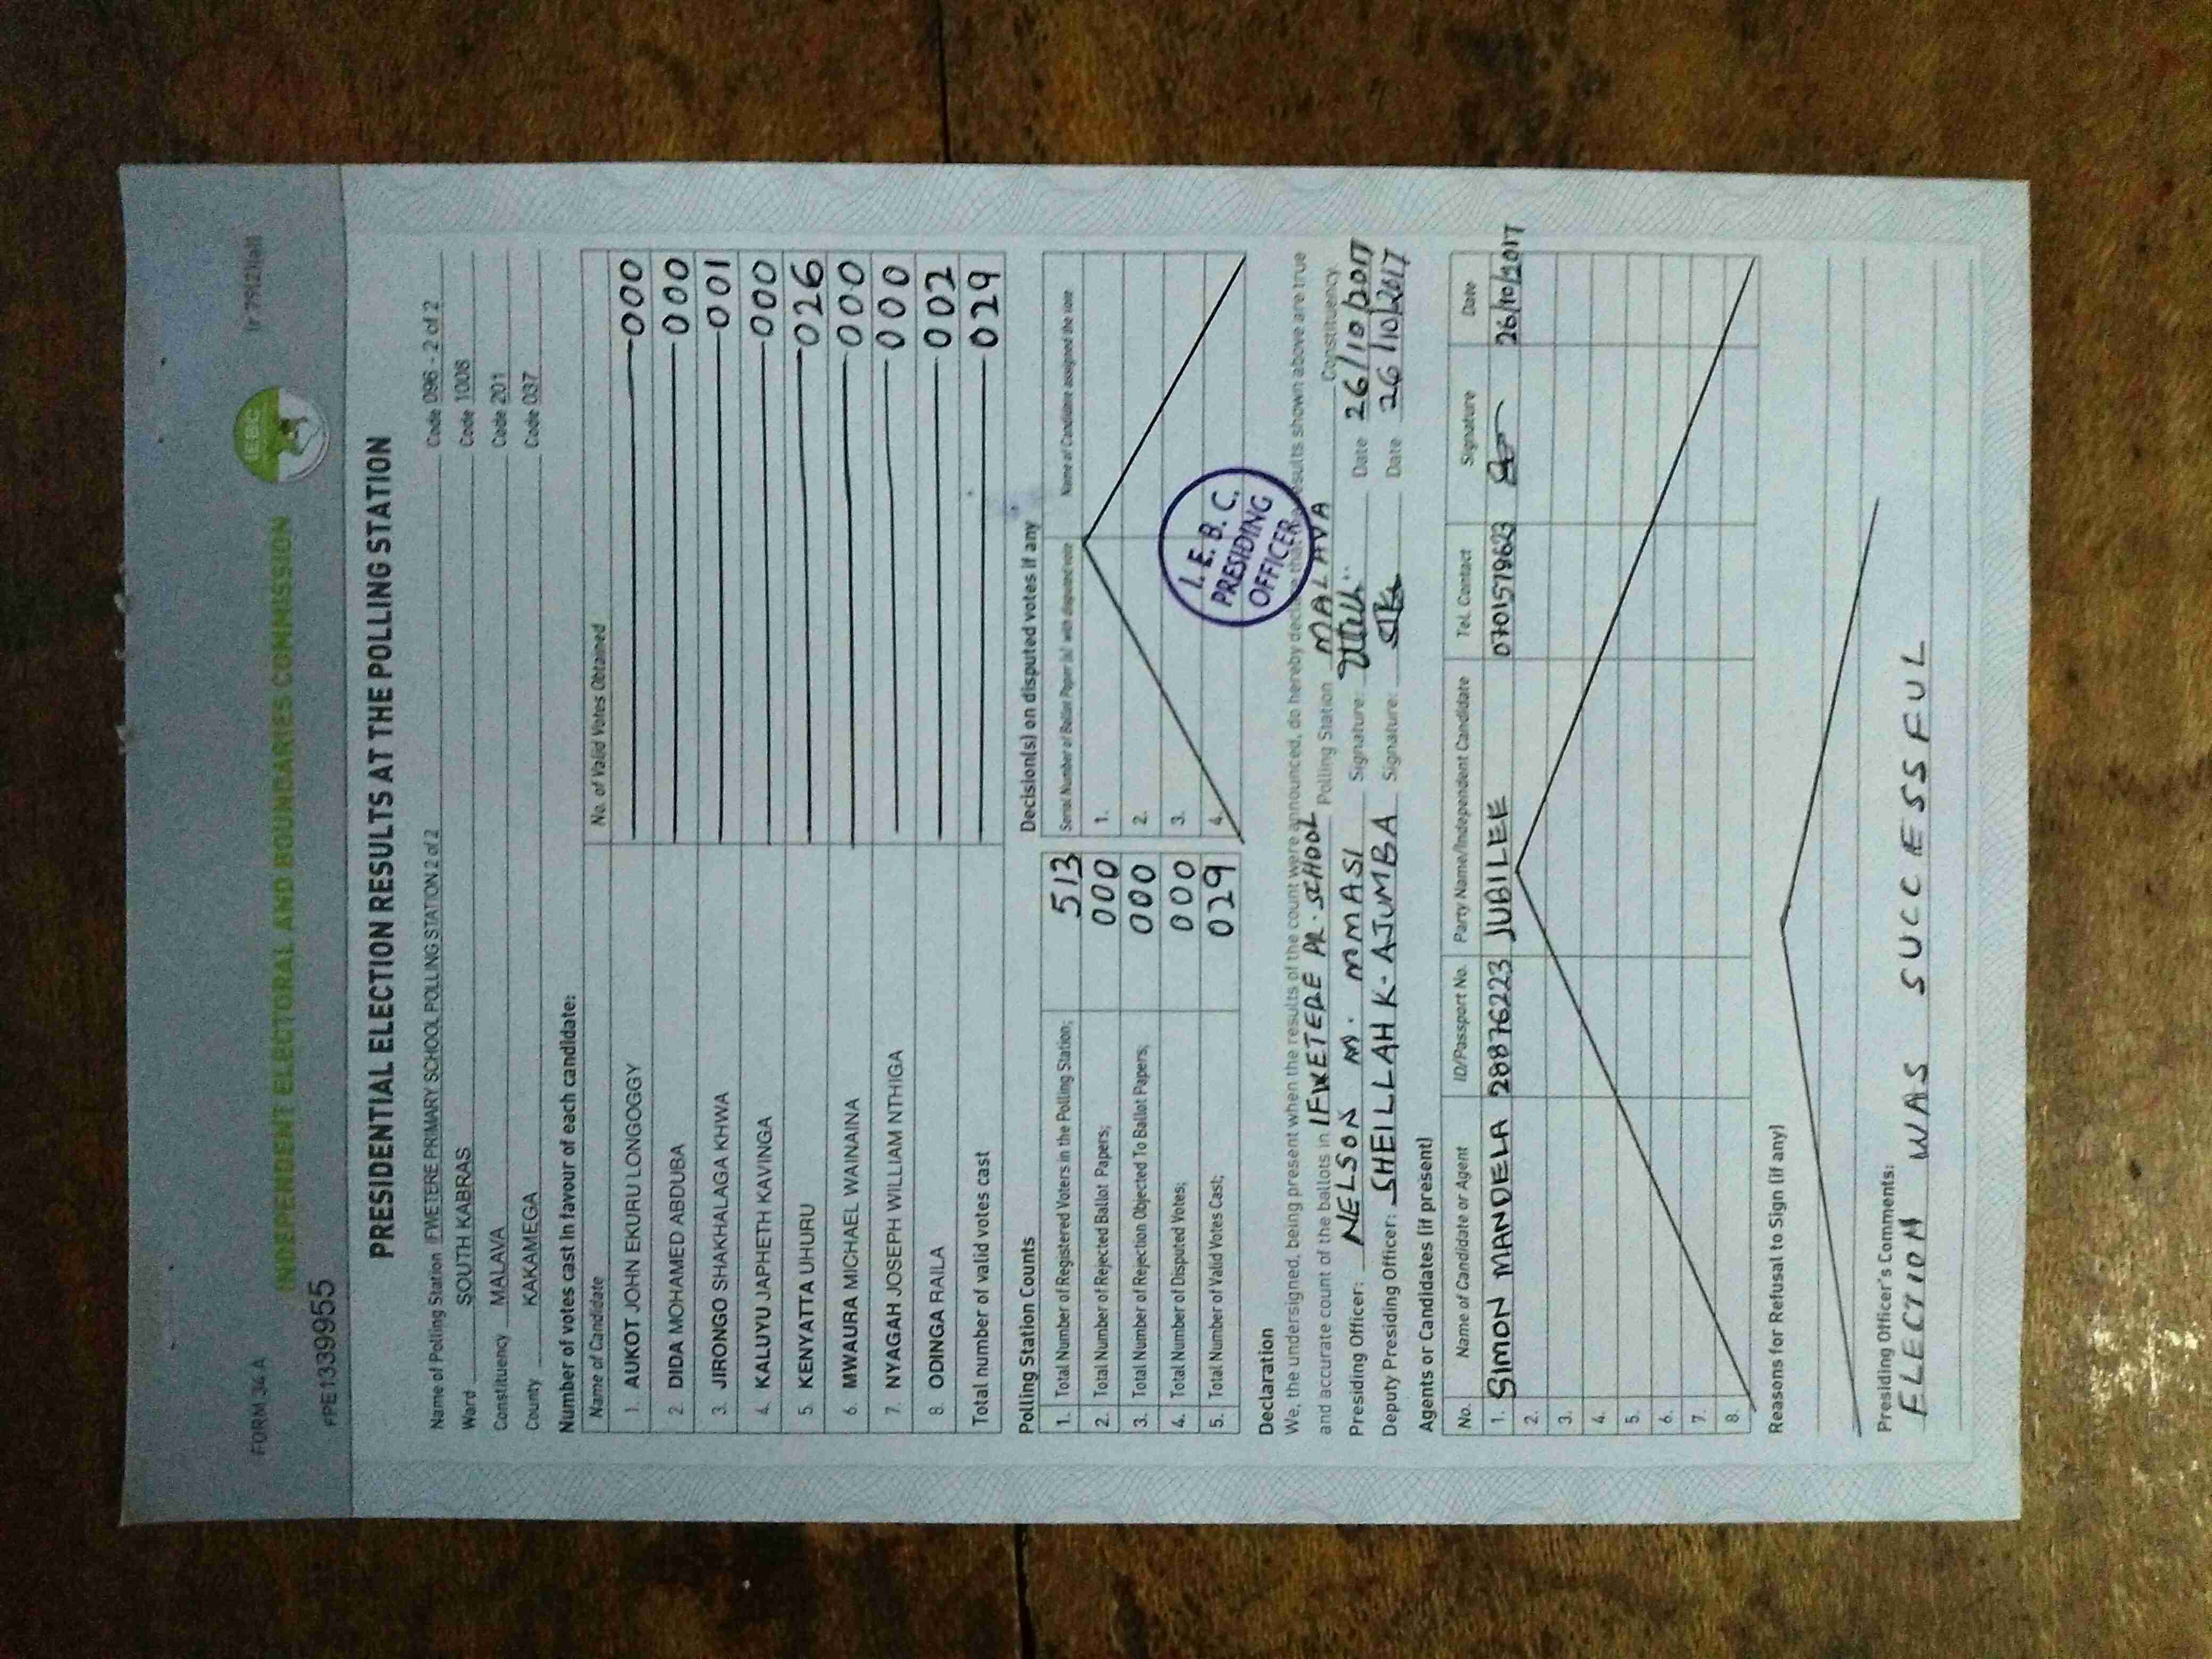 FORM 34A
r 79(2)(a)
INDEPENDENT ELECTORAL AND BOUNDARIES COMMISSION
IEBC
PPE1339955
PRESIDENTIAL ELECTION RESULTS AT THE POLLING STATION
Name of Polling Station IFWETERE PRIMARY SCHOOL POLLING STATION 2 of 2 Code 096 - 2 of 2
Ward SOUTH KABRAS Code 1008
Constituency MALAVA Code 201
County KAKAMEGA Code 037
Number of votes cast in favour of each candidate:
Name of Candidate No. of Valid Votes Obtained
1. AUKOT JOHN EKURU LONGOGGY 000
2. DIDA MOHAMED ABDUBA 000
3. JIRONGO SHAKHALAGA KHWA 001
4. KALUYU JAPHETH KAVINGA 000
5. KENYATTA UHURU 026
6. MWAURA MICHAEL WAINAINA 000
7. NYAGAH JOSEPH WILLIAM NTHIGA 000
8. ODINGA RAILA 002
Total number of valid votes cast 029
Polling Station Counts
1. Total Number of Registered Voters in the Polling Station; 513
2. Total Number of Rejected Ballot Papers; 000
3. Total Number of Rejection Objected To Ballot Papers; 000
4. Total Number of Disputed Votes; 000
5. Total Number of Valid Votes Cast; 029
Decision(s) on disputed votes if any
Serial Number of Ballot Paper (s) with disputed vote Name of Candidate assigned the vote
1.
2.
3.
4.
I. E. B. C.
PRESIDING
OFFICER
Declaration
We, the undersigned, being present when the results of the count were announced, do hereby declare that the results shown above are true
and accurate count of the ballots in IFWETERE PR. SCHOOL Polling Station MALAVA Constituency.
Presiding Officer: NELSON M. MMASI Signature: Date 26/10/2017
Deputy Presiding Officer: SHEILLAH K. AJUMBA Signature: Date 26/10/2017
Agents or Candidates (if present)
No. Name of Candidate or Agent ID/Passport No. Party Name/Independent Candidate Tel. Contact Signature Date
1. SIMON MANDELA 28876223 JUBILEE 0701579623 26/10/2017
2.
3.
4.
5.
6.
7.
8.
Reasons for Refusal to Sign (if any)
Presiding Officer's Comments:
ELECTION WAS SUCCESSFUL